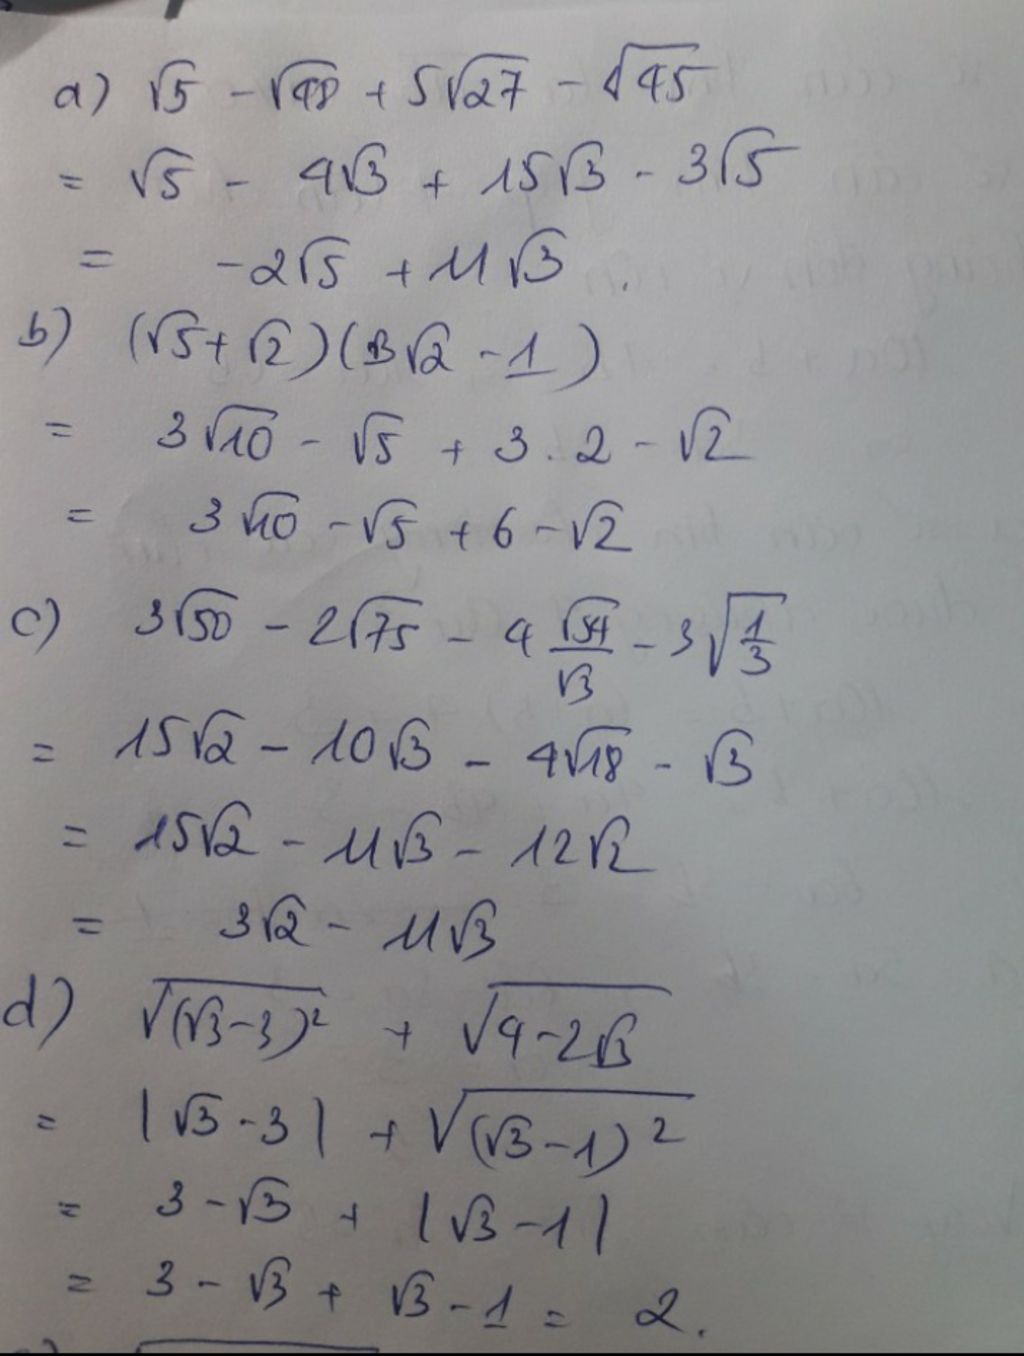 a) √5 - √48 + 5√27 - √45
= √5 - 4√3 + 15√3 - 3√5
= -2√5 + 11√3.
b) (√5 + √2)(3√2 - 1)
= 3√10 - √5 + 3.2 - √2
= 3√10 - √5 + 6 - √2
c) 3√50 - 2√75 - 4 √54/√3 - 3√(1/3)
= 15√2 - 10√3 - 4√18 - √3
= 15√2 - 11√3 - 12√2
= 3√2 - 11√3
d) √((√3-3)²) + √(4-2√3)
= |√3-3| + √((√3-1)²)
= 3 - √3 + |√3-1|
= 3 - √3 + √3 - 1 = 2.